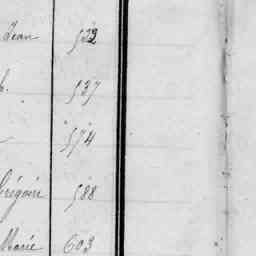 Jean 532
h. 537
574
Grégoire 588
Marie 603